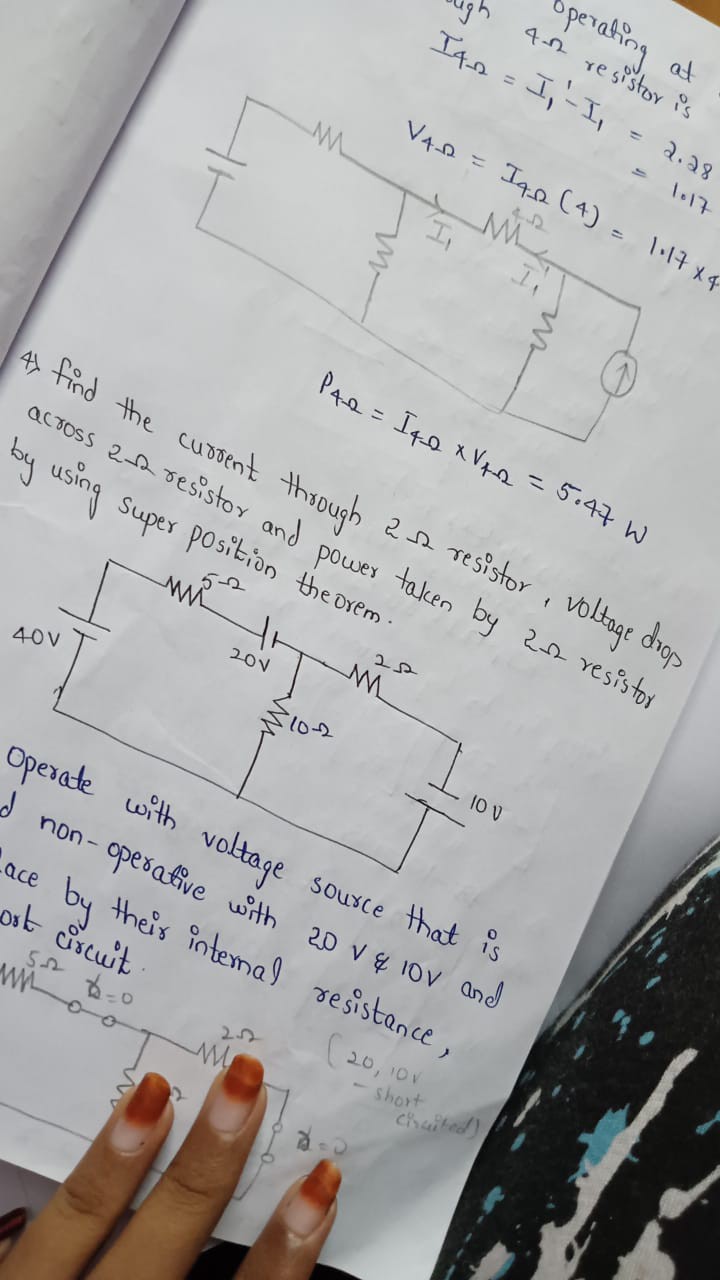 operating at
4Ω resistor is
I4Ω = I₁' - I₁ = 2.28
= 1.17
V4Ω = I4Ω (4) = 1.17 x 4
4Ω
I₁
I₁'
P4Ω = I4Ω x V4Ω = 5.47 W
4) find the current through 2Ω resistor, voltage drop
across 2Ω resistor and power taken by 2Ω resistor
by using super position theorem.
5Ω
40V
20V
2Ω
10Ω
10V
Operate with voltage source that is
non-operative with 20 V & 10V and
by their internal resistance,
circuit.
5Ω
=0
2Ω
(20, 10V
- short
circuited)
=0